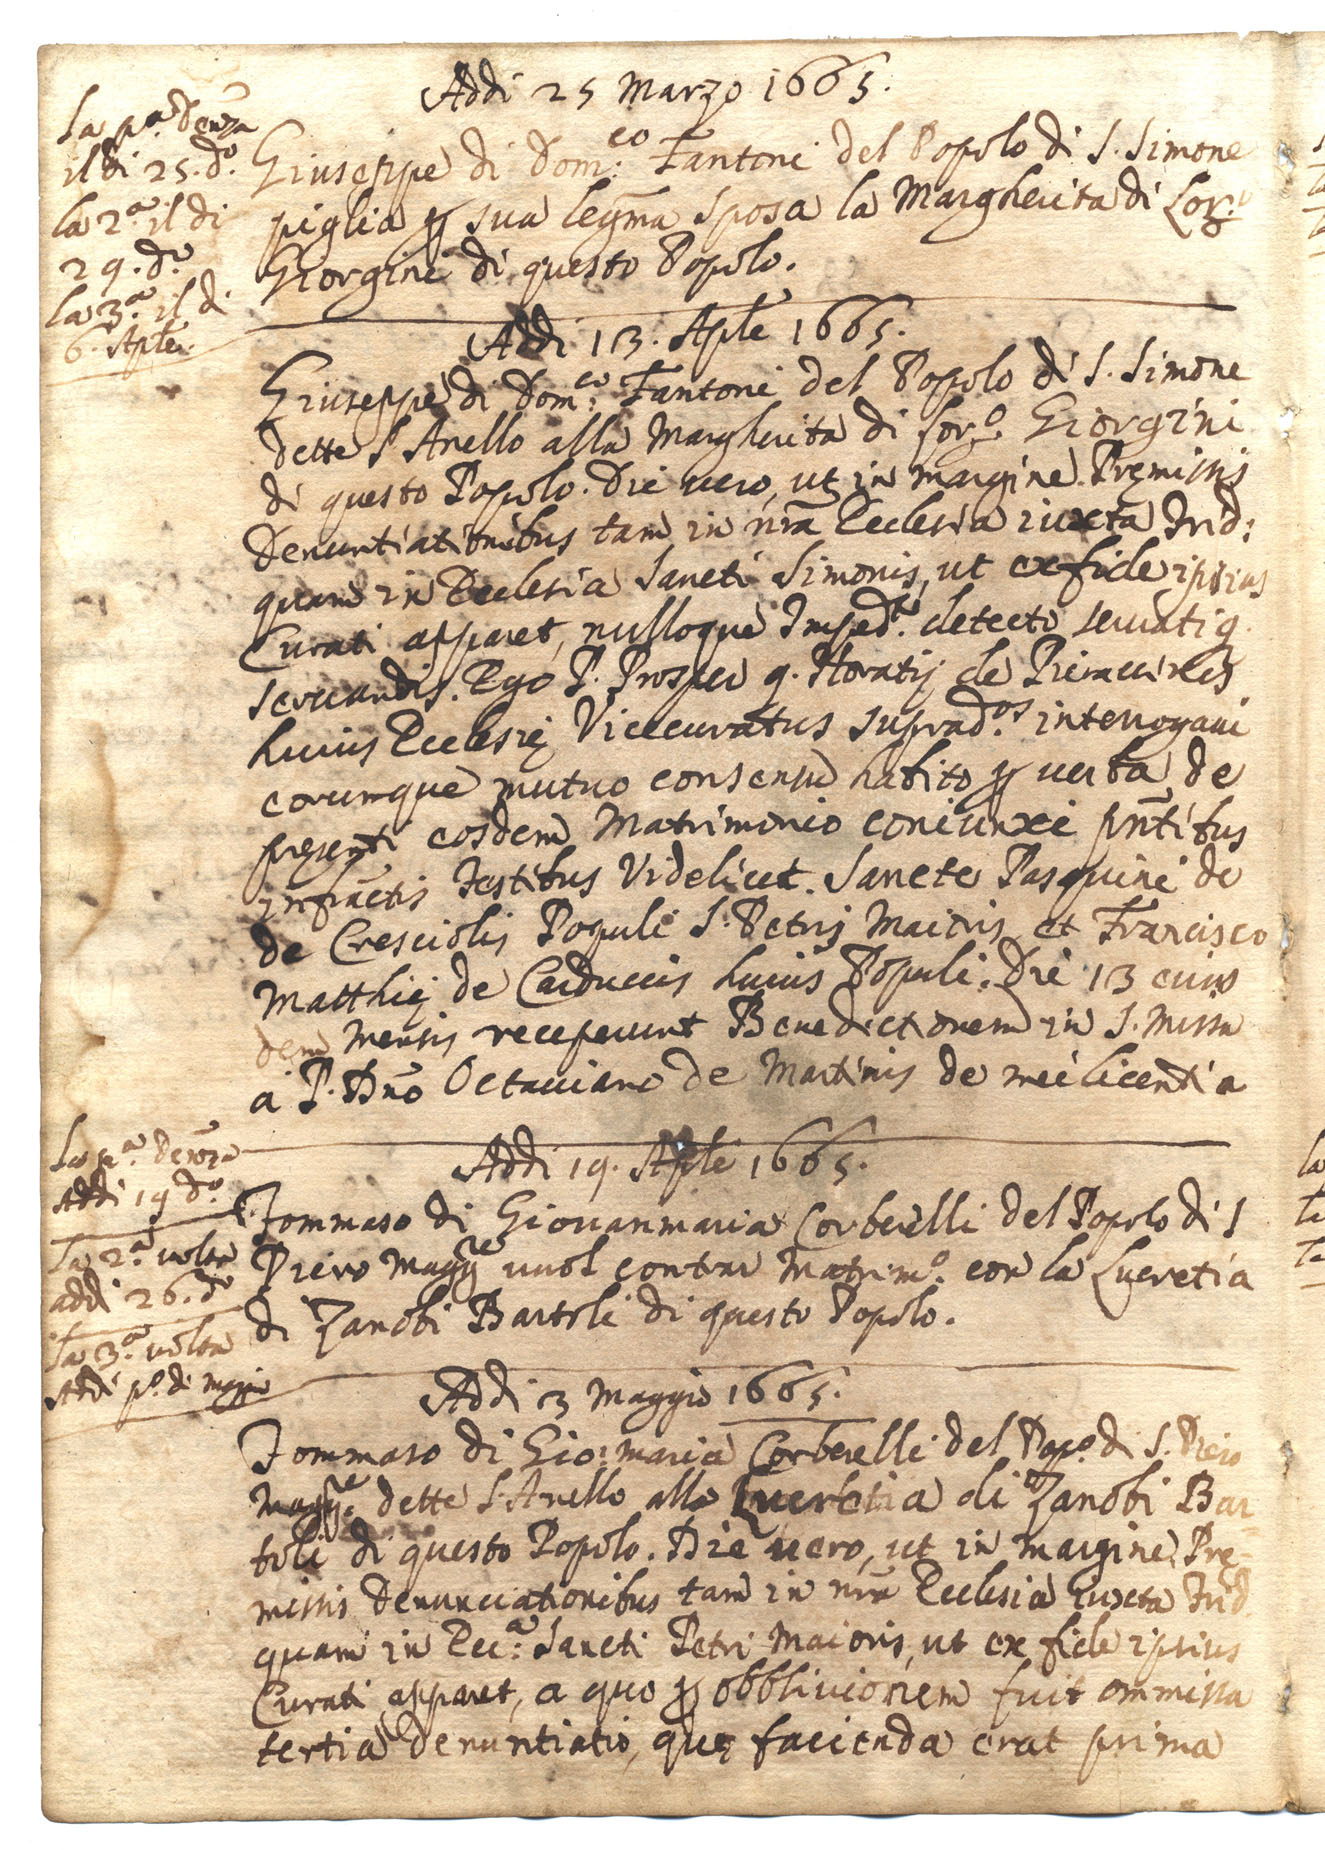 Addi 25 Marzo 1665.
La p.ª Denza
il di 25. dº
la 2.ª il di
29. dº
la 3.ª il di
6. Aple.
Giuseppe di Dom.co Fantoni del Popolo di S. Simone
piglia p sua legma sposa la Margherita di Lor.º
Giorgini di questo Popolo.
Addi 13. Aple 1665.
Giuseppe di Dom.co Fantoni del Popolo di S. Simone
dette l'Anello alla Margherita di Lor.º Giorgini
di questo Popolo. Die vero, ut in margine. Premissis
Denuntiationibus tam in nra Ecclesia iuxta Trid:
quam in Ecclesia Sancti Simonis, ut ex fide ipsius
Curati apparet, nulloque Imped.to detecto servatiq
servandis. Ego P. Prosper q. Horatij de
huius Ecclesię Vicecuratus suprad.os interrogavi
eorumque mutuo consensu habito p verba de
presenti eosdem Matrimonio coniunxi pntibus
infractis Testibus Videlicet. Sancte Pasquini de
de Cresciolis Populi S. Petrij Maioris, et Francisco
Matthię de Carduccis huius Populi. Die 13 eius
dem Mensis receperunt Benedictionem in S. Missa
a P. Dno Octaviano de Martinis de mei licentia
La p.ª Denza
Addi 19 dº
La 2.ª volta
addi 26. dº
La 3.ª volta
Addi pº di maggio
Addi 19. Aple 1665.
Tommaso di Giovanmaria Corberelli del Popolo di S
Piero Magg.re vuol contrar Matrim.º con la Lucretia
di Zanobi Bartoli di questo Popolo.
Addi 3 Maggio 1665.
Tommaso di Gio: maria Corberelli del Popº di S. Piero
Magg.re dette l'Anello alla Lucretia di Zanobi Bar
toli di questo Popolo. Die vero, ut in margine, Prę-
missis denunciationibus tam in nra Ecclesia iuxta Trid
quam in Ecc.ª Sancti Petri Maioris, ut ex fide ipsius
Curati apparet, a quo p obblivionem fuit ommissa
tertia denuntiatio, quę facienda erat prima